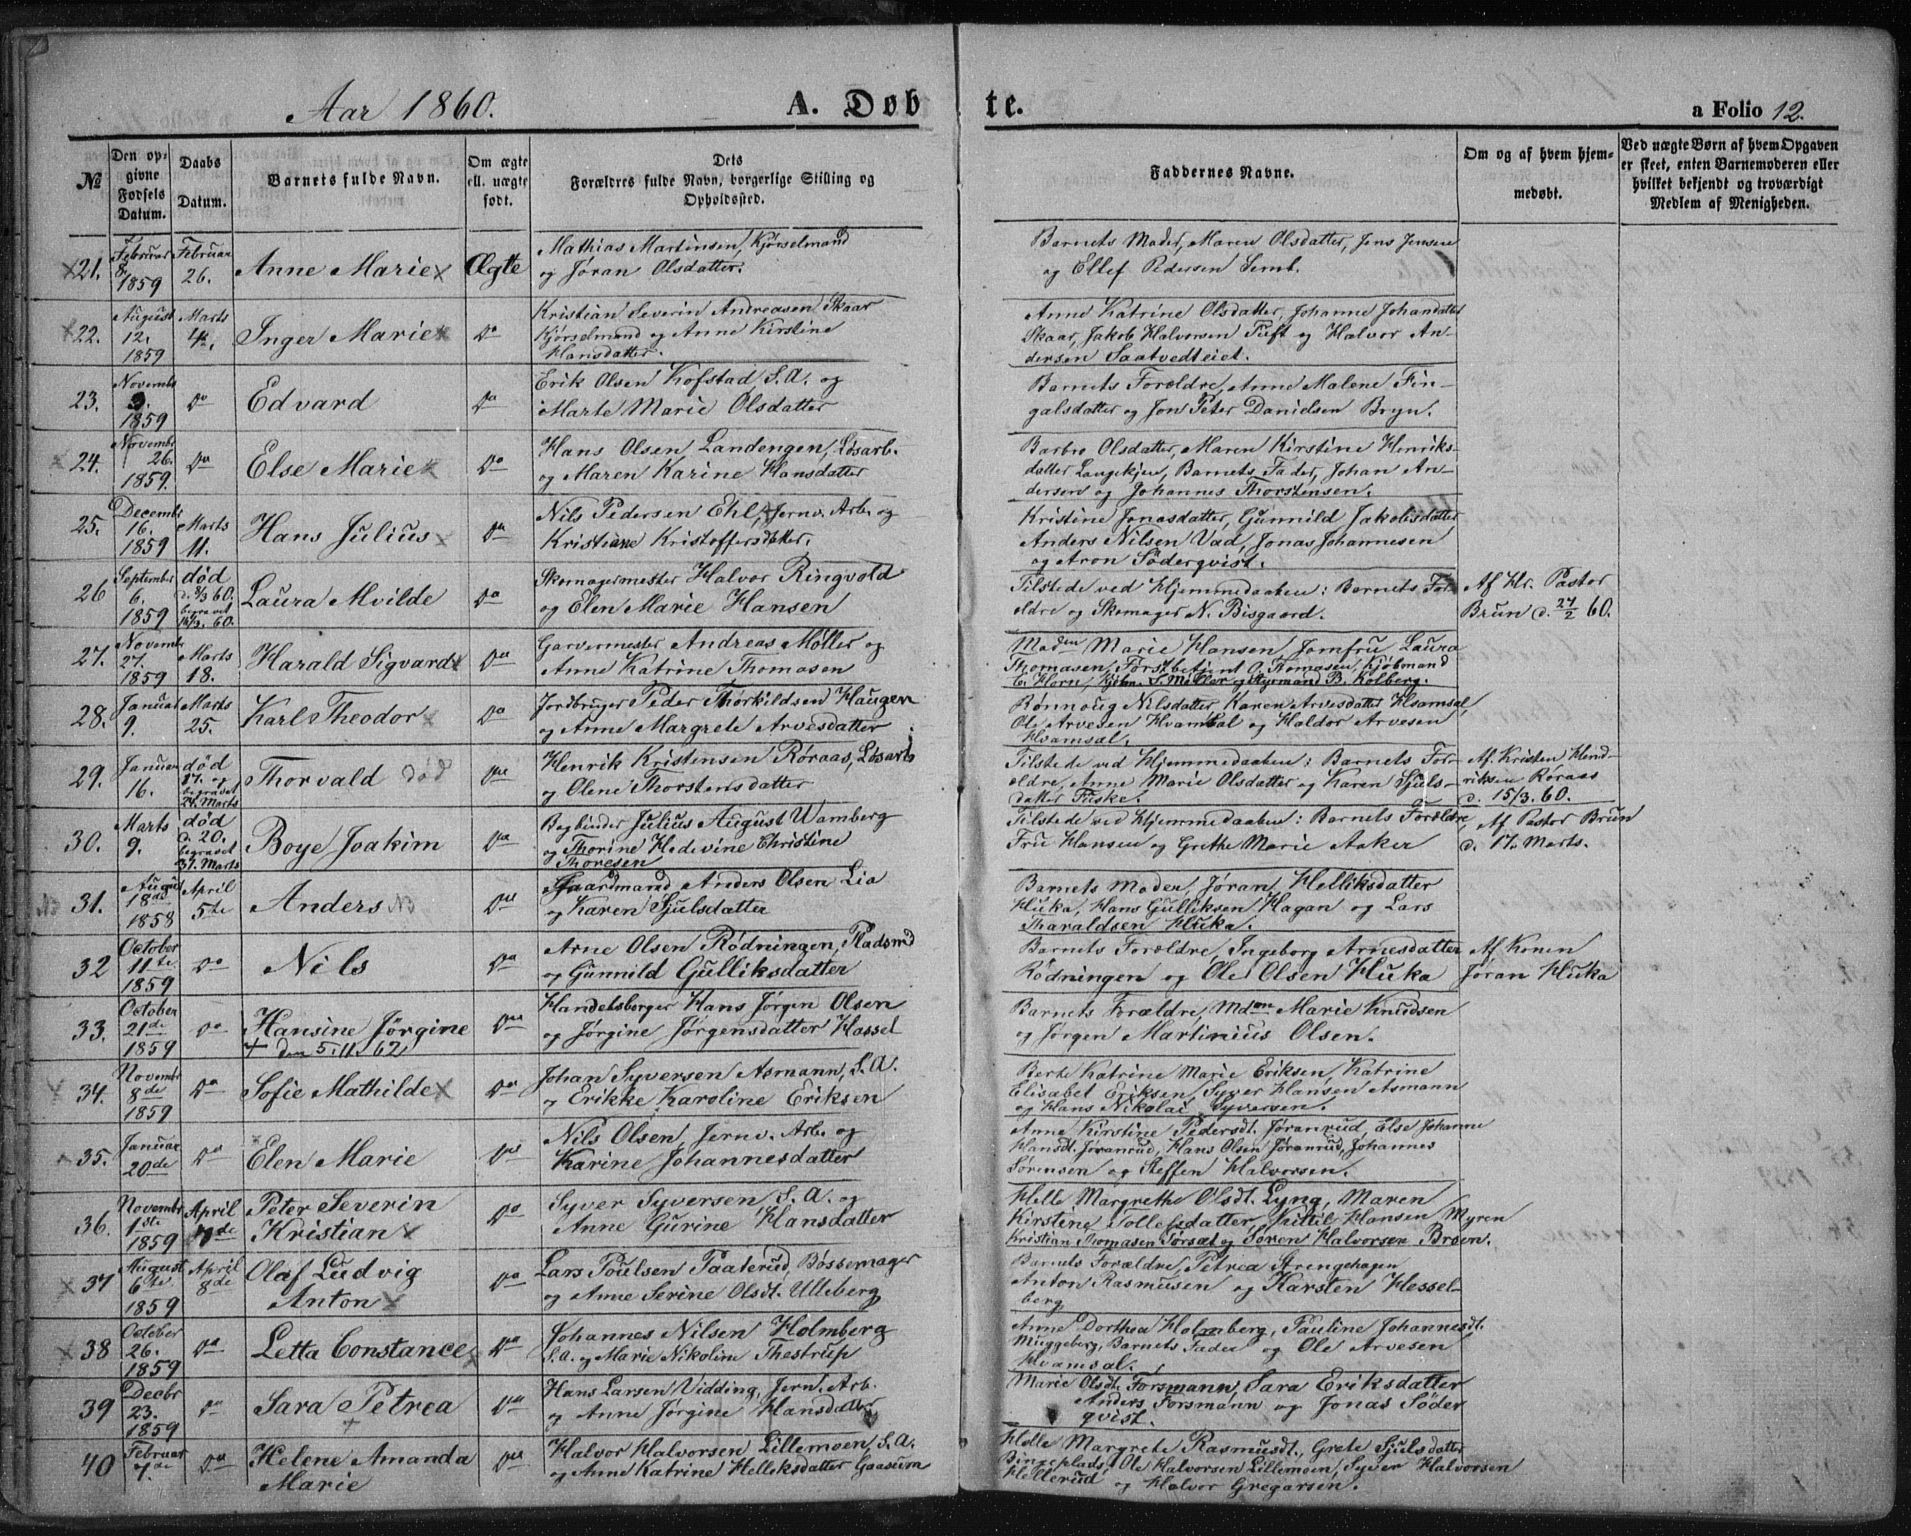 Aar 1860.
A. Døbte.
a Folio 12.
№
Den opgivne Fødsels Datum.
Daabs Datum.
Barnets fulde Navn.
Om ægte ell. uægte født.
Dets Forældres fulde Navn, borgerlige Stilling og Opholdssted.
Faddernes Navne.
Om og af hvem hjemmedøbt.
Ved uægte Børn af hvem Opgaven er skeet, enten Barnemoderen eller hvilket bekjendt og troværdigt Medlem af Menigheden.
21. Februar 8. 1859 Februar 26. Anne Marie Ægte
Mathias Martinsen, Kjørselmand
og Jøran Olsdatter.
Barnets Moder, Maren Olsdatter, Jens Jensen
og Ellef Pedersen Semb.
22. August 12. 1859 Marts 4. Inger Marie Do
Kristian Severin Andreasen Skaar
Kjørselmand og Anne Kirstine
Hansdatter.
Anne Katrine Olsdatter, Johanne Johandatter
Skaar, Jakob Halvorsen Tuft og Halvor An-
dersen Saatvedteiet.
23. Novembr 9. 1859 Do Edvard Do
Erik Olsen Kofstad S.A. og
Marte Marie Olsdatter
Barnets Forældre, Anne Malene Fin-
galsdatter og Jon Peter Danielsen Bryn.
24. Novembr 26. 1859. Do Else Marie Do
Hans Olsen Landengen, Løsarb.
og Maren Karine Hansdatter
Barbro Olsdatter, Maren Kirstine Henriks-
datter Langekjen, Barnets Fader, Johan An-
dersen og Johannes Thorstensen.
25. Decembr 16. 1859 Marts 11. Hans Julius Do
Nils Pedersen Ehl, Jernv. Arb. og
Kristiane Kristoffersdatter.
Kristine Jonasdatter, Gunnild Jakobsdatter
Anders Nilsen Vad, Jonas Johannesen
og Aron Söderqvist.
26 September 6. 1859 død d. 8/3 60. begravet 16/3. 60. Laura Mvilde Do
Skomagermester Halvor Ringvold
og Elen Marie Hansen
Tilstede ved Hjemmedaaben: Barnets For-
ældre og Skomager N. Bisgaard.
Af Hr. Pastor
Brun d. 27/2 60.
27. Novemb. 27. 1859 Marts 18. Harald Sigvard Do
Garvermester Andreas Møller og
Anne Katrine Thomasen
Maden Marie Hansen, Jomfru Laura
Thomasen, Forstbetjent O. Thomasen, Kjøbmand
C. Horn, Kjøbm. S. Møller og Styrmand B. Kolberg.
28. Januar 9. Marts 25. Karl Theodor Do
Jordbruger Peder Thorkildsen Haugen
og Anne Margrete Arvesdatter
Rønnoug Nilsdatter, Karen Arvesdatter Hvamsal,
Ole Arvesen Hvamsal og Haldor Arvesen
Hvamsæl.
29. Januar 16. død 17. og begravet 24. Marts Thorvald død Do
Henrik Kristensen Røraas, Løsarb
og Olene Thorstensdatter
Tilstede ved Hjemmedaaben: Barnets For-
ældre, Anne Marie Olsdatter og Karen Sjuls-
datter Fuske.
Af Kristen Hend-
riksen Røraas
d. 15/3. 60.
30. Marts 9. død d. 20. begravet 31. Marts Boye Joakim Do
Bogbinder Julius August Wamberg
og Thorine Hedevine Christine
Thoresen
Tilstede ved Hjemmedaaben: Barnets Forældre,
Fru Hansen og Grethe Marie Aaker
Af Pastor Brun
d. 17. Marts.
31. August 18de 1858 April 5te Anders Do
Gaardmand Anders Olsen Lia
og Karen Sjulsdatter
Barnets Moder, Jøran Helliksdatter
Huka, Hans Gulliksen Hagan og Lars
Tharaldsen Huka.
32 October 11te 1859 Do Nils Do
Arne Olsen Rødningen, Pladsmd
og Gunnild Gulliksdatter
Barnets Forældre, Ingeborg Arnesdatter
Rødningen og Ole Olsen Huka
Af Konen
Jøran Huka
33. October 21de 1859 Do Hansine Jørgine
+ den 5.11.62 Do
Handelsborger Hans Jørgen Olsen
og Jørgine Jørgensdatter Hassel
Barnets Forældre, Mdm Marie Knudsen
og Jørgen Martinius Olsen.
34. Novembr 8de 1859 Do Sofie Mathilde Do
Johan Syversen Asmann, S.A.
og Erikke Karoline Eriksen
Berte Katrine Marie Eriksen, Katrine
Elisabet Eriksen, Syver Hansen Asmann
og Hans Nikolai Syversen.
35. Januar 20de Do Elen Marie Do
Nils Olsen, Jernv. Arb. og
Karine Johannesdatter
Anne Kirstine Pedersdt. Jøranrud, Else Johanne
Hansdt. Jøranrud, Hans Olsen Jøranrud, Johannes
Sørensen og Steffen Halvorsen.
36. Novembr 1ste 1859 April 7de Peter Severin
Kristian Do
Syver Syversen, S.A. og
Anne Gurine Hansdatter
Helle Margrethe Olsdt. Lyng, Maren
Kirstine Tollefsdatter, Kittil Hansen Myren
Kristian Thomasen Torsæt og Søren Halvorsen Breen.
37 August 6te 1859 April 8de Olaf Ludvig
Anton Do
Lars Poulsen Paaterud, Bøssemager
og Anne Serine Olsdt. Ulleberg
Barnets Forældre, Petrea Strengehagen
Anton Rasmusen og Karsten Hessel-
berg
38 October 26. 1859 Do Letta Constance Do
Johannes Nilsen Holmberg
S.A. og Marie Nikoline Thestrup
Anne Dorthea Holmberg, Pauline Johannesdt.
Muggeberg, Barnets Fader og Ole Arvesen
Hvamsal.
39 Decbr 23. 1859 Do Sara Petrea Do
Hans Larsen Vidding, Jern. Arb.
og Anne Jørgine Hansdatter
Marie Olsdt. Forsmann, Sara Eriksdatter
Anders Forsmann og Jonas Söder
qvist.
40 Februar 7de Do Helene Amanda
Marie Do
Halvor Halvorsen Lillemoen, S.A.
og Anne Katrine Helleksdatter Gaasum
Helle Margrete Rasmusdt., Grete Sjulsdatter
Bingeplads, Ole Halvorsen Lillemoen, Syver Halvorsen
Hellerud og Halvor Gregarsen.